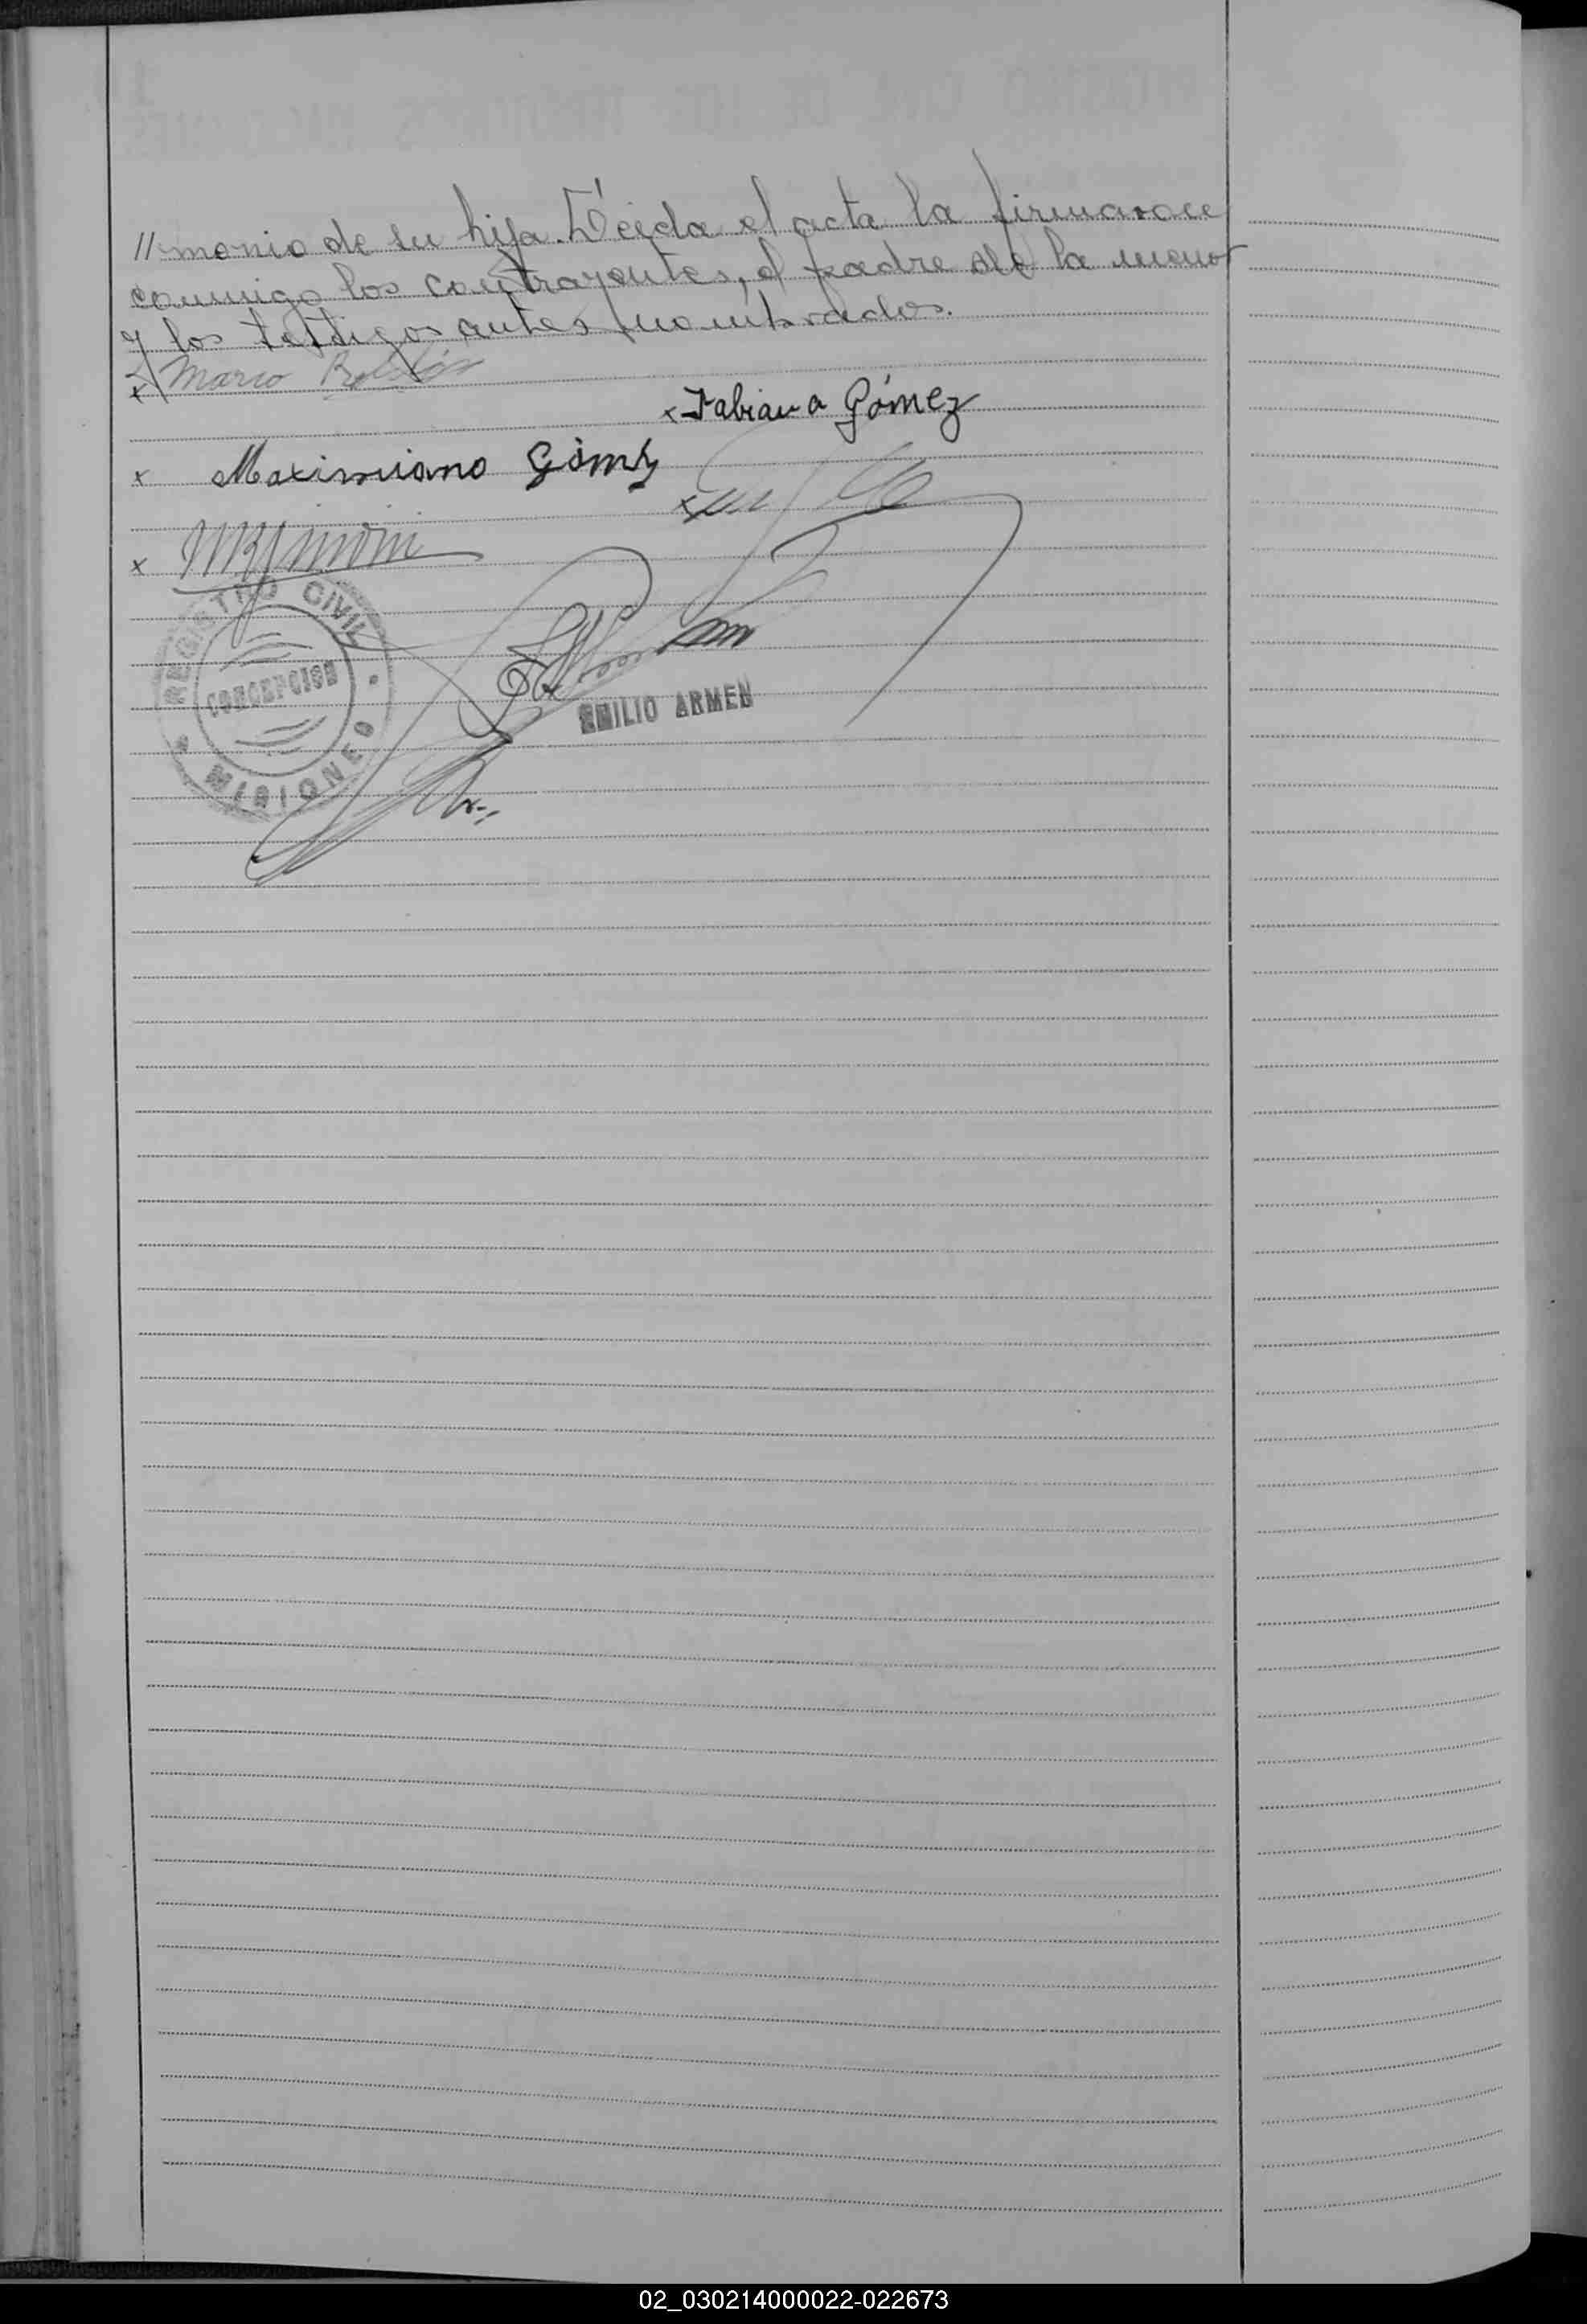 // monio de su hija. Leida el acta la firmaron
conmigo los contrayentes, el padre de la menor
y los testigos antes nombrados.
x Mario Roldón
x Fabiana Gómez
x Maximiano Gómez
x
x
REGISTRO CIVIL
CONCEPCION
MISIONES
EMILIO ARMEN
02_030214000022-022673